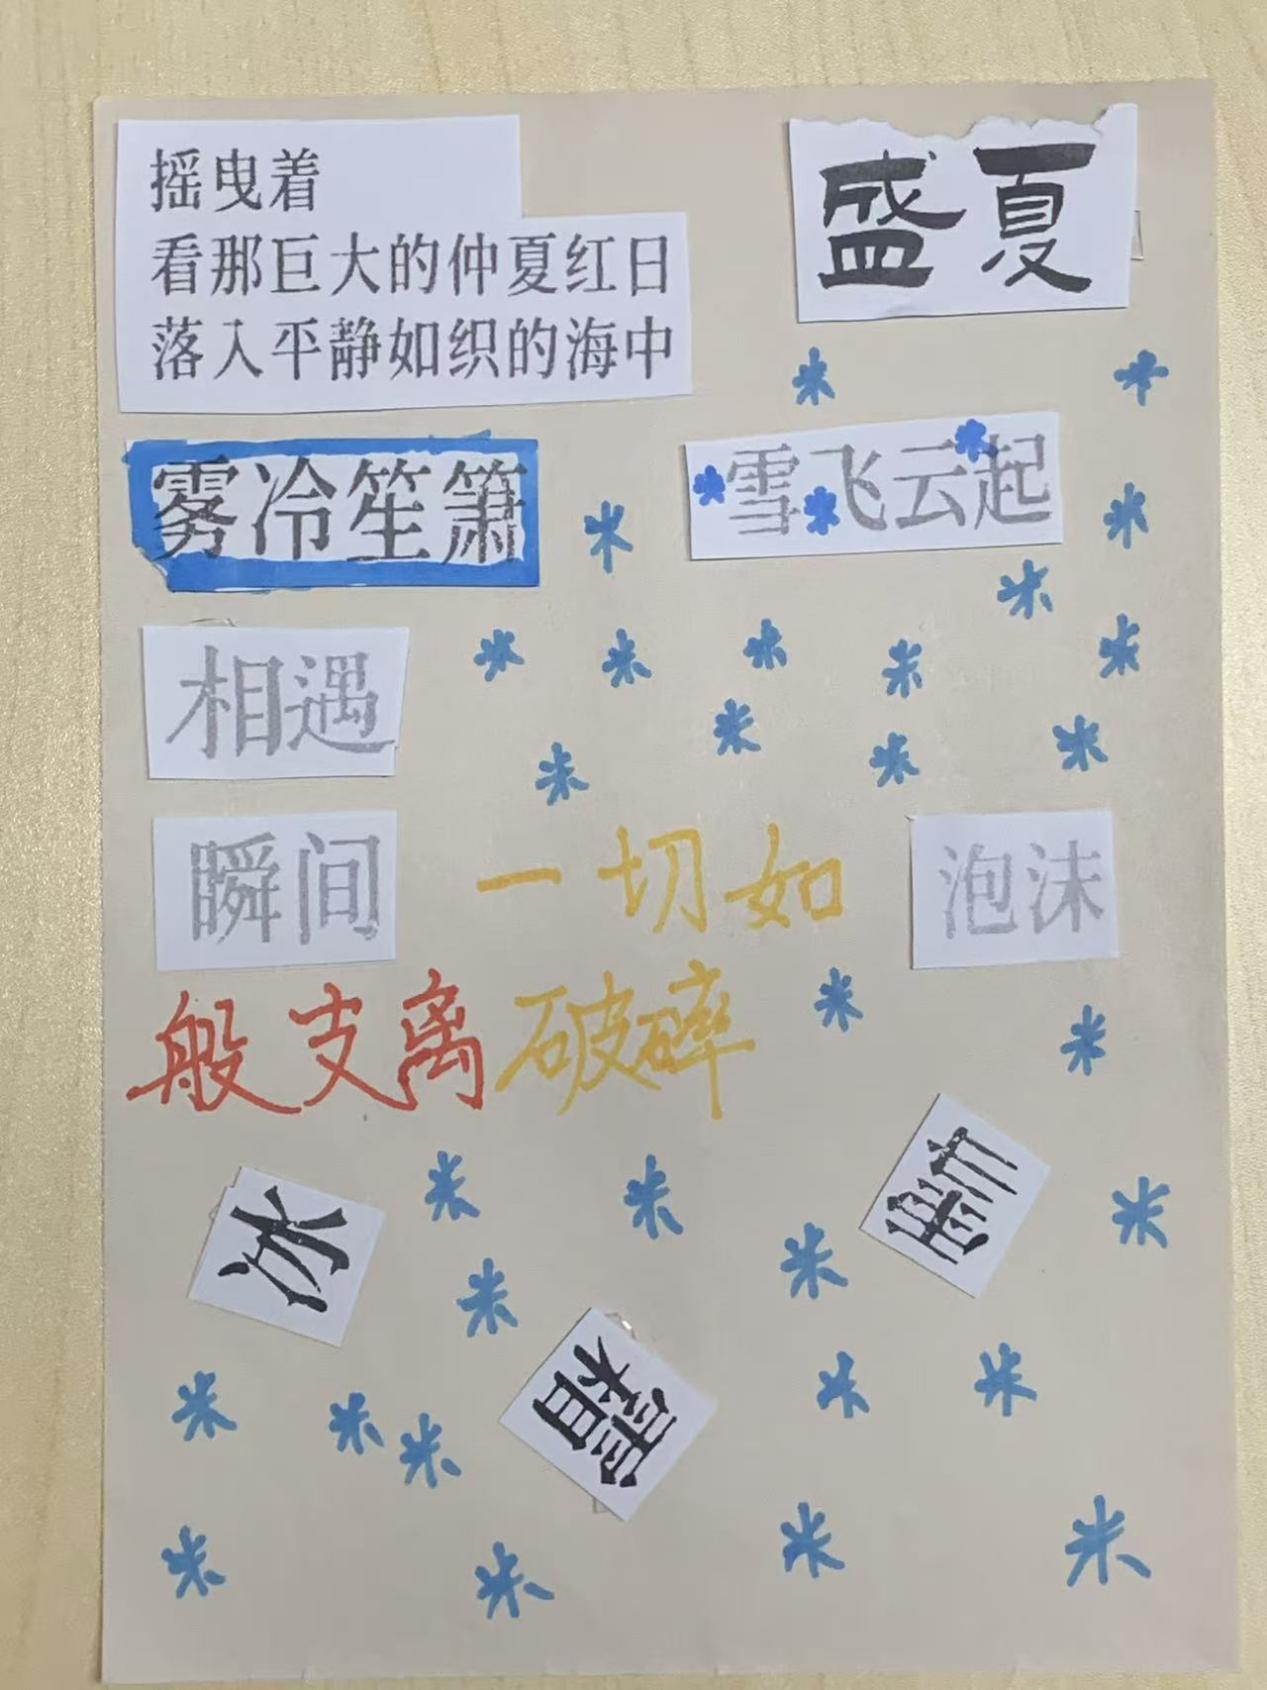 摇曳着
看那巨大的仲夏红日
落入平静如织的海中
盛夏
雾冷笙箫
雪飞云起
相遇
瞬间 一切如 泡沫
般支离破碎
冰
霜